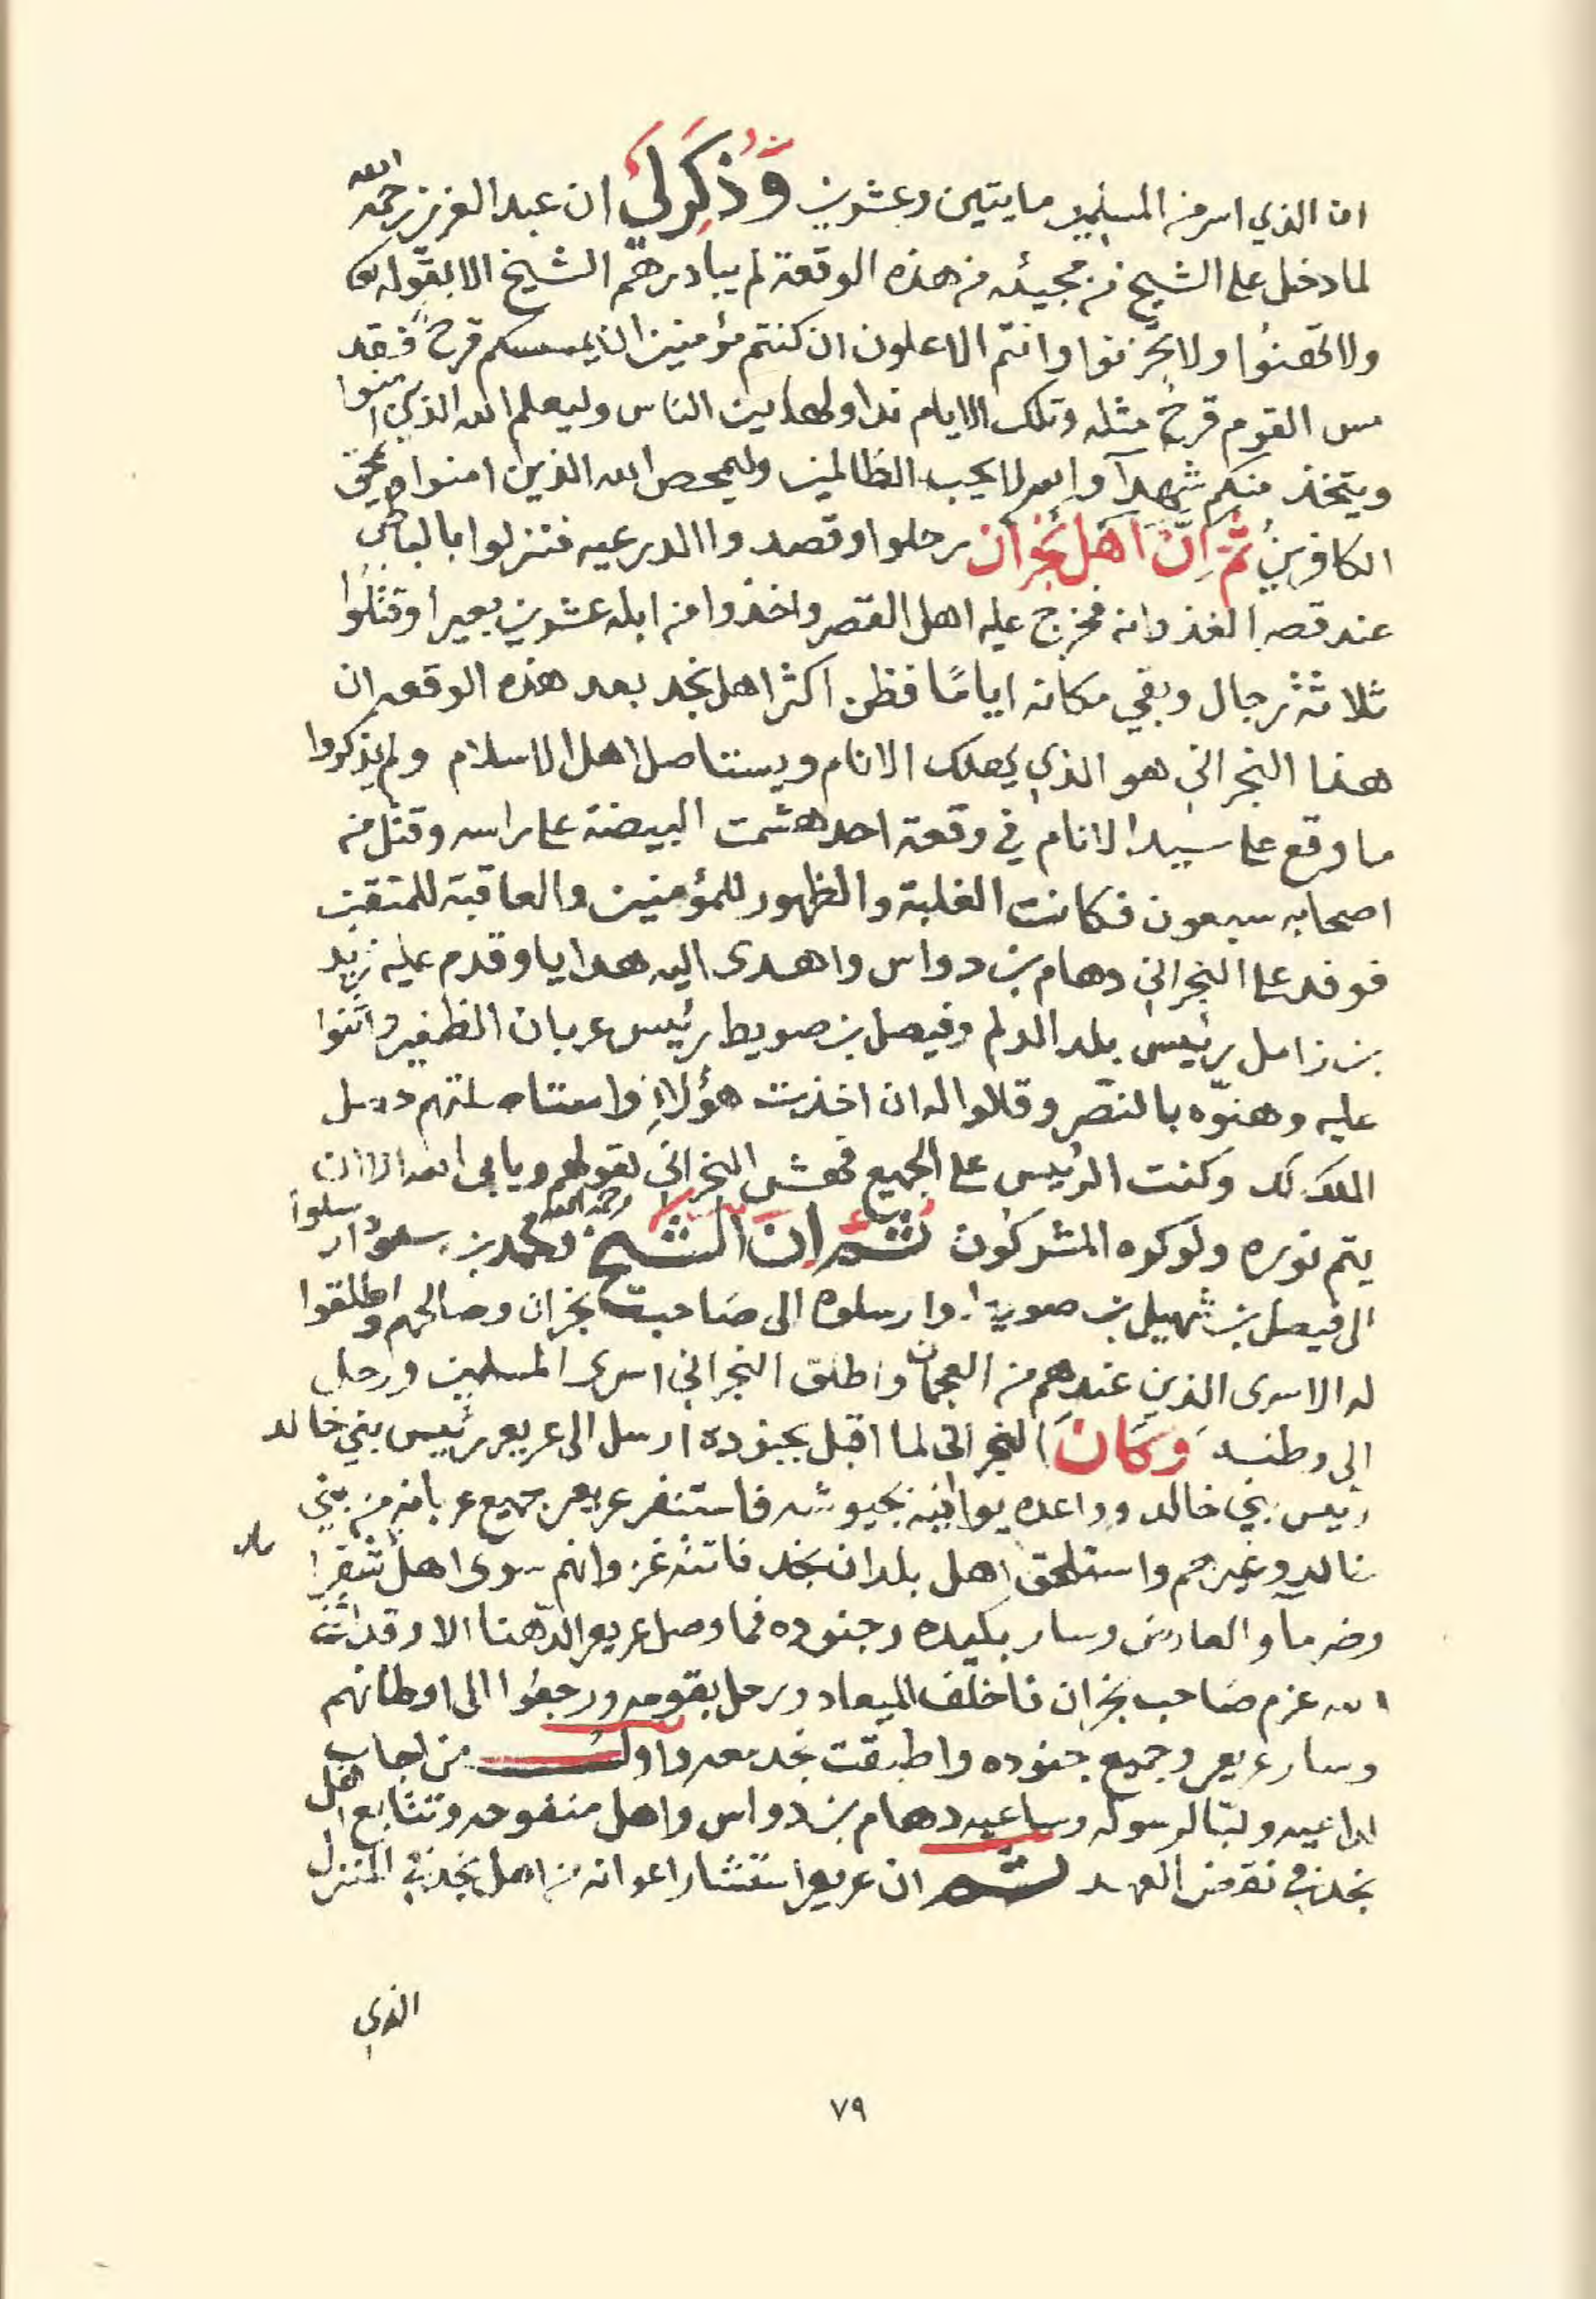 ان الذي اسر من المسلمين مايتين وعشرين وَذُكِرَ لي ان عبد العزيز رحمه الله
لما دخل على الشيخ من مجيئه من هذه الوقعة لم يبادرهم الشيخ الا بقوله
ولا تهنوا ولا تحزنوا وانتم الاعلون ان كنتم مؤمنين ان يمسسكم قرح فقد
مس القوم قرح مثله وتلك الايام نداولها بين الناس وليعلم الله الذين امنوا
ويتخذ منكم شهدآ والله لا يحب الظالمين وليمحص الله الذين امنوا ويمحق
الكافرين ثُمَّ اِنَّ اَهْل نَجْرَان رحلوا وقصدوا الدرعيه فنزلوا بالباطن
عند قصر الغذوانه فخرج عليه اهل القصر واخذوا من ابله عشرين بعيرا وقتلوا
ثلاثة رجال وبقي مكانه ايامًا فظن اكثر اهل نجد بعد هذه الوقعه ان
هذا النجراني هو الذي يهلك الانام ويستاصل اهل الاسلام ولم يذكروا
ما وقع على سيد الانام في وقعة احد هشمت البيضة على راسه وقتل من
اصحابه سبعون فكانت الغلبة والظهور للمؤمنين والعاقبة للمتقين
فوفد على النجراني دهام بن دواس واهدى اليه هدايا وقدم عليه زيد
بن زامل رئيس بلد الدلم وفيصل بن صويط رئيس عربان الظفير واثنوا
عليه وهنوّه بالنصر وقالوا له ان اخذت هؤلاءِ واستاصلتهم حصل
الملك لك وكنت الرئيس على الجميع فهش النجراني لقولهم ويابى الله الا ان
يتم نوره ولو كره المشركون ثم ان الشيخ رحمه الله ومحمد بن سعود ارسلوا
الى فيصل بن شهيل بن صويط وارسلوه الى صاحب نجران وصالحهم واطلقوا
له الاسرى الذين عندهم من العجمان واطلق النجراني اسرى المسلمين ورحل
الى وطنه وَكَانَ النجراني لما اقبل بجنوده ارسل الى عريعر رئيس بني خالد
رئيس بني خالد وواعده يوافيه بجيوشه فاستنفر عريعر جميع عربانه من بني
خالد وغيرهم واستلحق اهل بلدان نجد فاتته غزوانهم سوى اهل شقرا
وضرما والعارض وسار بكيده وجنوده فما وصل عريعر الدهنا الا وقد اثنى
الله عزم صاحب نجران فاخلف الميعاد ورحل بقومه ورجعوا الى اوطانهم
وسار عريعر وجميع جنوده واطبقت نجد معه واول من اجاب
لداعيه ولبّا لرسوله وساعيه دهام بن دواس واهل منفوحه وتتابع اهل
نجد في نقض العهد ثم ان عريعر استشار اعوانه من اهل نجد في المنزل
الذي
٧٩